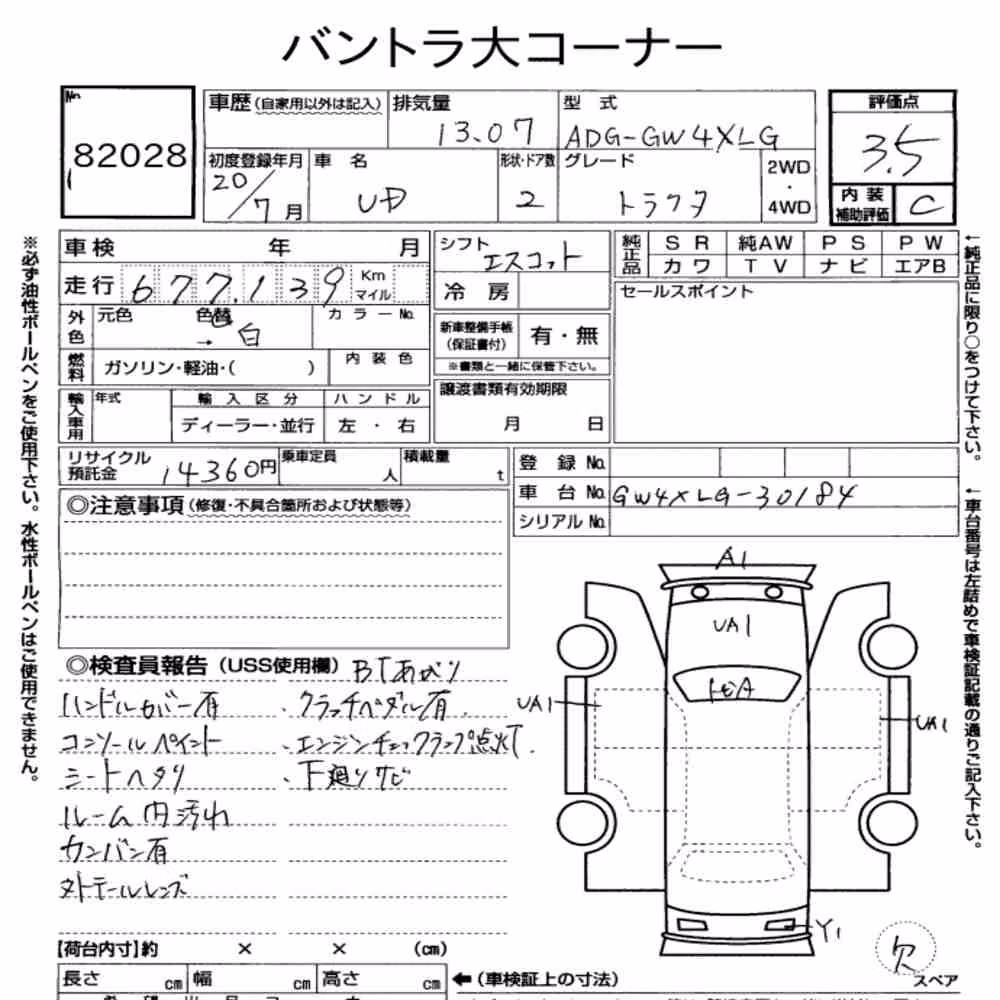 バントラ大コーナー
No.
82028
車歴(自家用以外は記入)
排気量
13.07
型 式
ADG-GW4XLG
評価点
3.5
内装
補助評価
C
初度登録年月
20/7月
車 名
UD
形状・ドア数
2
グレード
トラクタ
2WD
・
4WD
車検 年 月
走行 677.139 Km
マイル
外色
元色
色替
→ 白
カラーNo.
燃料
ガソリン・軽油・( )
内装色
輸入車用
年式
輸入区分
ディーラー・並行
ハンドル
左 ・ 右
シフト
エスコット
冷 房
新車整備手帳
(保証書付)
有・無
※書類と一緒に保管下さい。
譲渡書類有効期限
月 日
純正品
SR 純AW PS PW
カワ TV ナビ エアB
セールスポイント
リサイクル
預託金
14360円
乗車定員
人
積載量
t
登録No.
車台No. GW4XLG-30184
シリアルNo.
◎注意事項(修復・不具合箇所および状態等)
◎検査員報告(USS使用欄) BTあがり
ハンドルカバー有
コンソールペイント
シートヘタリ
ルーム内汚れ
カンバン有
外テールレンズ
・クラッチペダル有
・エンジンチェックランプ点灯
・下廻りサビ
A1
UA1
UA1
UA1
Y1
欠
スペア
【荷台内寸】約 × × (cm)
長さ cm 幅 cm 高さ cm
←(車検証上の寸法)
※必ず油性ボールペンをご使用下さい。水性ボールペンはご使用できません。
←純正品に限り○をつけて下さい。
←車台番号は左詰めで車検証記載の通りご記入下さい。